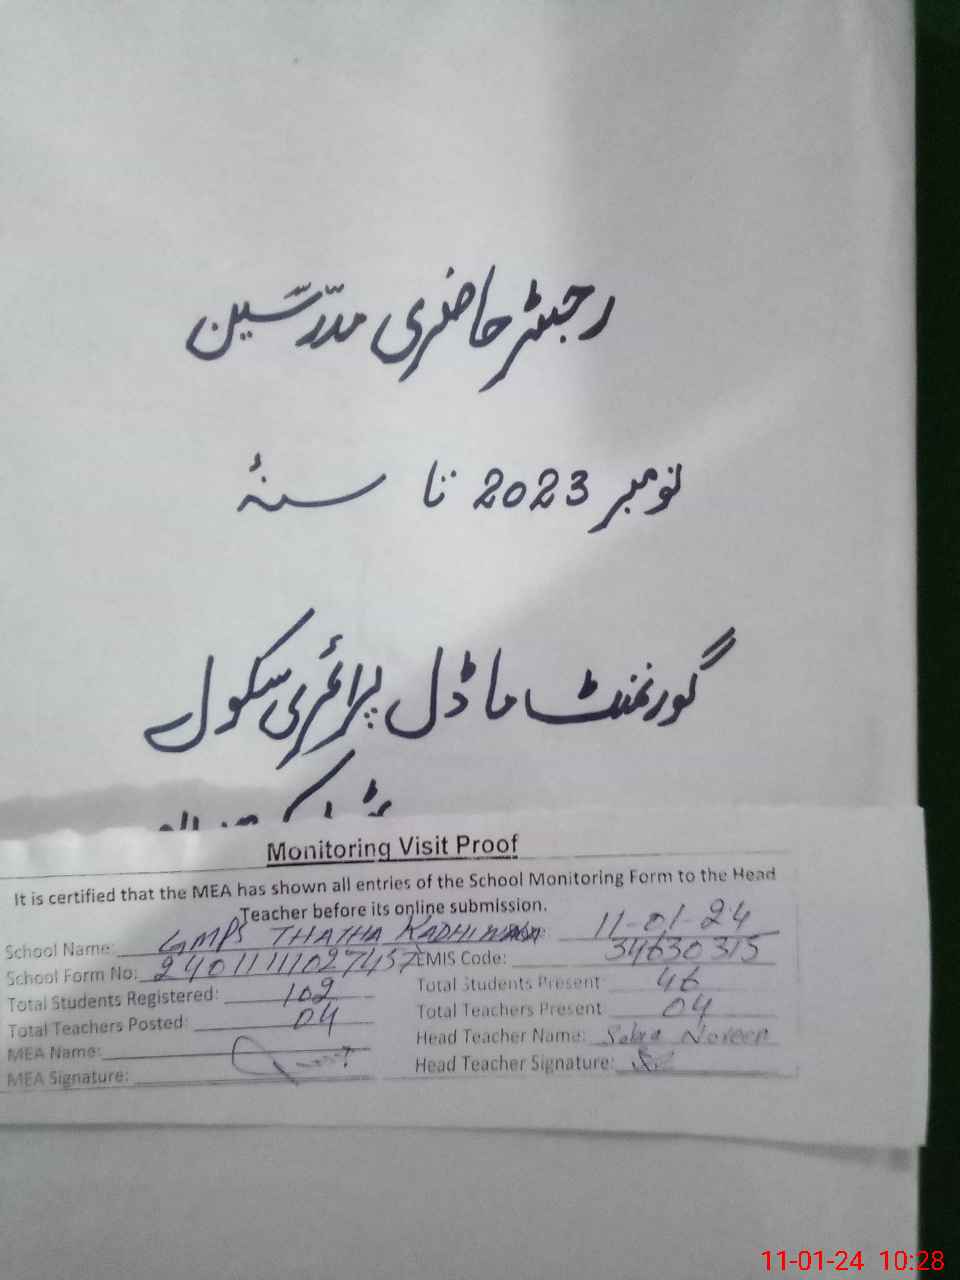 رجسٹر حاضری مدرّسین
نومبر 2023 تا سنہٴ
گورنمنٹ ماڈل پرائمری سکول
Monitoring Visit Proof
It is certified that the MEA has shown all entries of the School Monitoring Form to the Head
Teacher before its online submission.
School Name: GMPS THATHA KADHIWALA 11-01-24
School Form No: 24011111027457 EMIS Code: 34630315
Total Students Registered: 102 Total Students Present 46
Total Teachers Posted: 04 Total Teachers Present 04
MEA Name: Head Teacher Name: Sabra Noreen
MEA Signature: Head Teacher Signature:
11-01-24 10:28